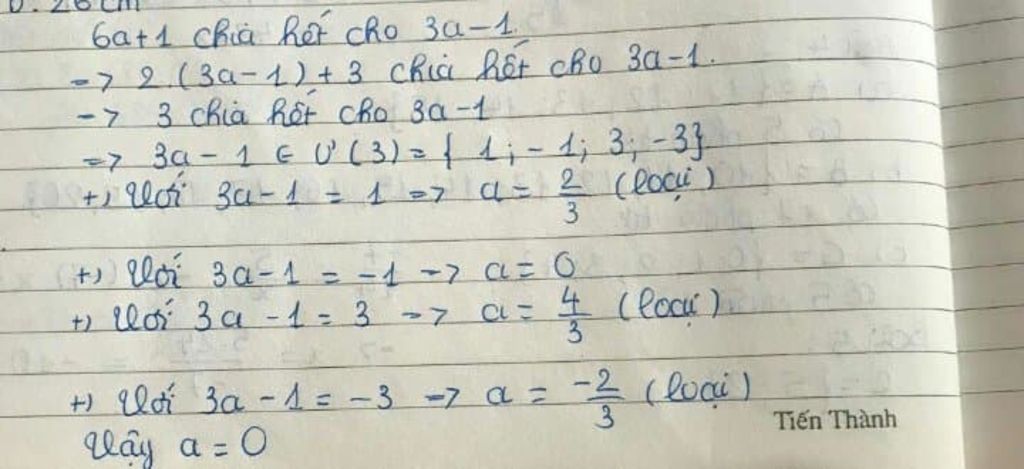 6a+1 chia hết cho 3a-1.
-> 2.(3a-1)+3 chia hết cho 3a-1.
-> 3 chia hết cho 3a-1
=> 3a-1 ∈ Ư(3)={1;-1;3;-3}
+) Với 3a-1 = 1 -> a = 2/3 (loại)
+) Với 3a-1 = -1 -> a = 0
+) Với 3a-1 = 3 -> a = 4/3 (loại)
+) Với 3a-1 = -3 -> a = -2/3 (loại)
Tiến Thành
Vậy a = 0